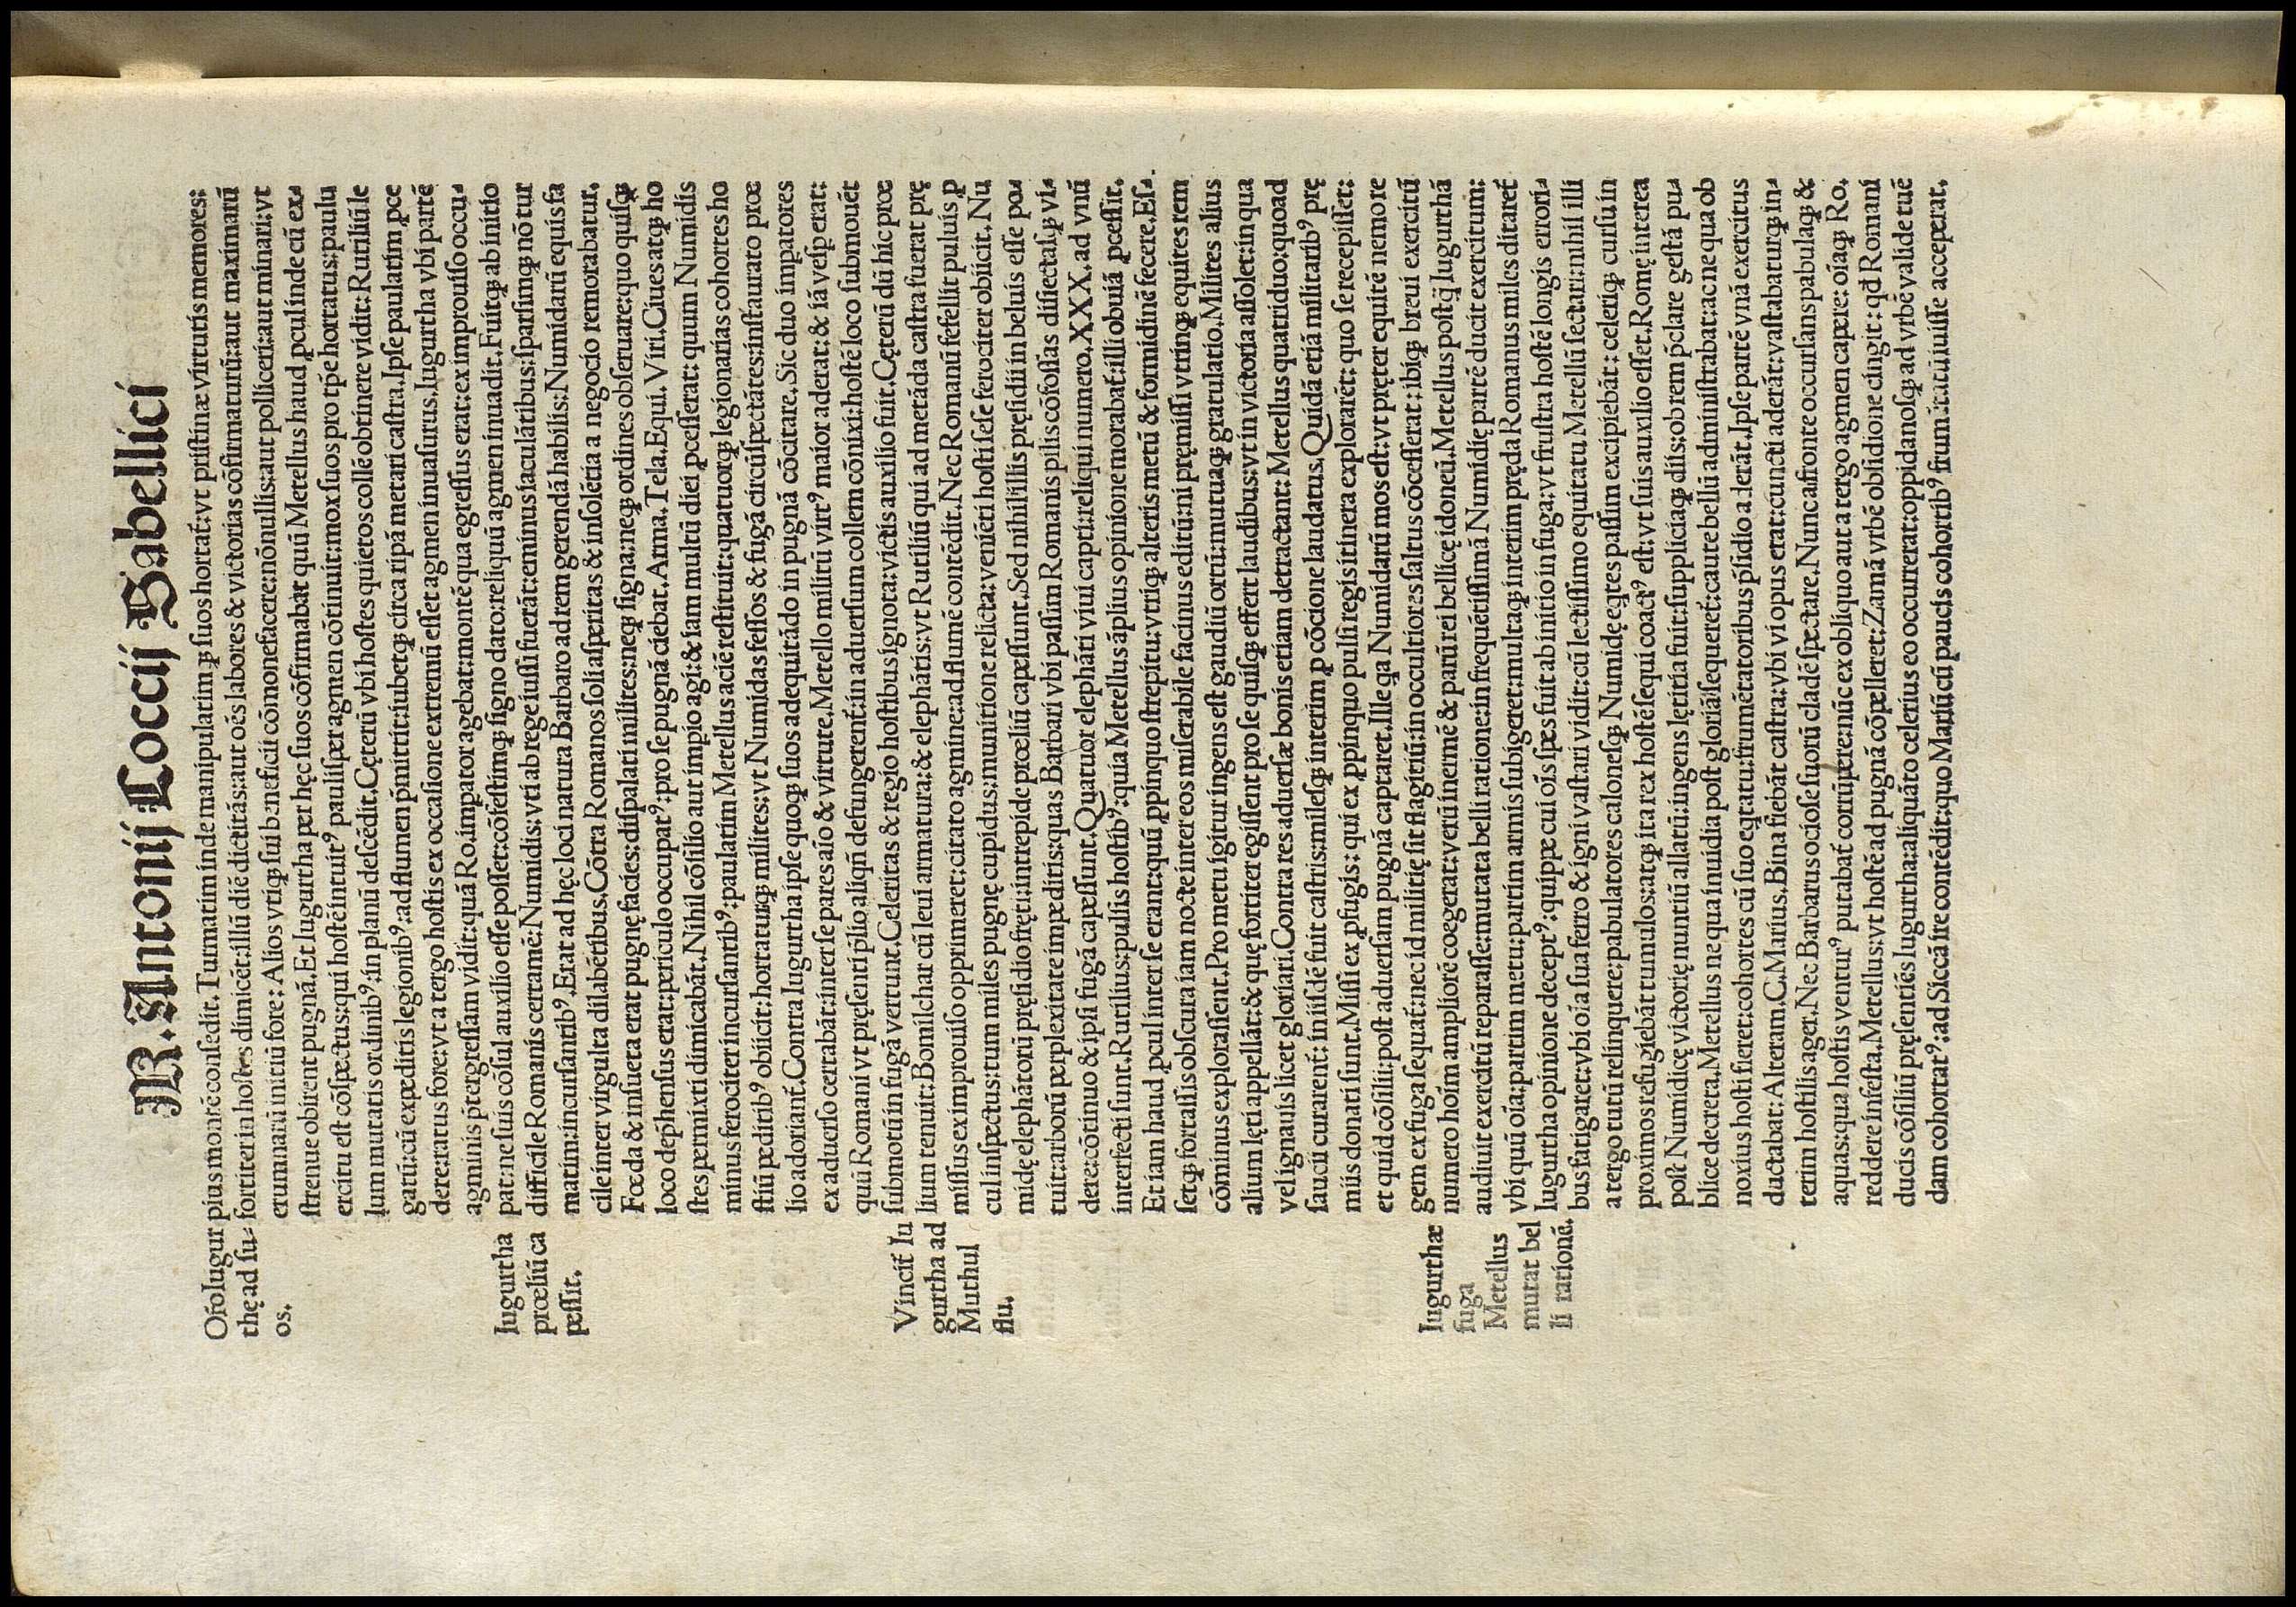 M. Antonij Coccij Sabellici
pius montē consedit. Turmatim inde manipulatimꝗ suos hortat́: vt pristinæ virtutis memores:
fortiter in hostes dimicēt: illū diē dictitās: aut oēs labores & victorias cōfirmaturū: aut maximarū
erumnarū initiū fore: Alios vtiqꝫ sui beneficii cōmonefacere: nōnullis: aut polliceri: aut minari: vt
strenue obirent pugnā. Et Iugurtha per hęc suos cōfirmabat quū Metellus haud ꝓcul inde cū ex⸗
ercitu est cōspectus: qui hostē intuitꝰ paulisper agmen cōtinuit: mox suos pro tp̄e hortatus: paulu
lum mutatis ordinibꝰ: in planū descēdit. Cęterū vbi hostes quietos collē obtinere vidit: Rutiliū le
gatū: cū expeditis legionibꝰ: ad flumen p̄mittit: iubetqꝫ circa ripā metari castra. Ipse paulatim ꝓce
dere: ratus fore: vt a tergo hostis ex occasione extremū esset agmen inuasurus. Iugurtha vbi partē
agminis p̄tergressam vidit: quā Ro. impator agebat: montē qua egressus erat: ex improuiso occu⸗
pat: ne suis cōsul auxilio esse posset: cōfestimqꝫ signo dato: reliquū agmen inuadit. Fuitqꝫ ab initio
difficile Romanis certamē: Numidis: vti ab rege iussi fuerāt: eminus iaculātibus: sparsimqꝫ nō tur
matim: incursantibꝰ. Erat ad hęc loci natura Barbaro ad rem gerendā habilis: Numidarū equis fa
cile inter virgulta dilabētibus. Cōtra Romanos soli asperitas & insolētia a negocio remorabatur.
Fœda & insueta erat pugnę facies: dispalati milites: neqꝫ signa: neqꝫ ordines obseruare: quo quisqꝫ
loco dep̄hensus erat: periculo occupatꝰ: pro se pugnā ciebat. Arma. Tela. Equi. Viri. Ciues atqꝫ ho
stes permixti dimicabāt. Nihil cōsilio aut impio agi: & iam multū diei ꝓcesserat: quum Numidis
minus ferociter incursantibꝰ: paulatim Metellus aciē restituit: quatuorqꝫ legionarias cohortes ho
stiū peditibꝰ obiicit: hortaturqꝫ milites: vt Numidas fessos & fugā circūspectātes: instaurato prœ
lio adoriant́. Contra Iugurtha ipse quoqꝫ suos adequitādo in pugnā cōcitare. Sic duo impatores
ex aduerso certabāt: inter se pares aīo & virtute. Metello militū virtꝰ maior aderat: & iā vesp erat:
quū Romani vt pręsenti p̄lio aliqñ defungerent́: in aduersum collem cōnixi: hostē loco submouēt
submotū in fugā vertunt. Celeritas & regio hostibus ignota: victis auxilio fuit. Cęterū dū hic prœ
lium tenuit: Bomilchar cū leui armatura: & elephātis: vt Rutiliū qui ad metāda castra fuerat prę
missus ex improuiso opprimeret: citato agmine: ad flumē contēdit. Nec Romanū fefellit puluis ꝓ
cul inspectus: tum miles pugnę cupidus: munitione relicta: veniēti hosti sese ferociter obiicit. Nu
midę elephātorū pręsidio fręti: intrepide prœliū capessunt. Sed nihil illis pręsidii in beluis esse po⸗
tuit: arborū perplexitate impeditis: quas Barbari vbi passim Romanis pilis cōfossas disiectasqꝫ vi⸗
dere: cōtinuo & ipsi fugā capessunt. Quatuor elephāti viui capti: reliqui numero. XXX. ad vnū
interfecti sunt. Rutilius: pulsis hostibꝰ: quia Metellus āplius opinione morabat́: illi obuiā ꝓcessit.
Et iam haud ꝓcul inter se erant: quū ꝓpinquo strepitu: vtriqꝫ alteris metū & formidinē fecere. Es⸗
setqꝫ fortassis obscura iam nocte inter eos miserabile facinus editū: ni pręmissi vtrinqꝫ equites rem
cōminus explorassent. Pro metu igitur ingens est gaudiū ortū: mutuaqꝫ gratulatio. Milites alius
alium lęti appellāt: & quę fortiter egissent pro se quisqꝫ effert laudibus: vt in victoria assolet: in qua
vel ignauis licet gloriari. Contra res aduersæ bonis etiam detractant: Metellus quatriduo: quoad
saucii curarent́: in iisdē fuit castris: milesqꝫ interim ꝓ cōcione laudatus. Quidā etiā militaribꝰ prę
miis donati sunt. Missi ex ꝑfugis: qui ex ꝓpinquo pulsi regis itinera explorarēt: quo se recepisset:
et quid cōsilii: post aduersam pugnā captaret. Ille qa Numidarū mos est: vt pręter equitē nemo re
gem ex fuga sequat́: nec id militię sit flagitiū: in occultiores saltus cōcesserat: ibiqꝫ breui exercitū
numero hoīm ampliorē coegerat: verū inermē & parū rei bellicę idoneū. Metellus postq̄ Iugurthā
audiuit exercitū reparasse: mutata belli ratione: in frequētissimā Numidię partē ducit exercitum:
vbi quū oīa: partim metu: partim armis subigeret: multaqꝫ interim pręda Romanus miles ditaret́
Iugurtha opinione deceptꝰ: quippe cui oīs spes fuit ab initio in fuga: vt frustra hostē longis errori⸗
bus fatigaret: vbi oīa sua ferro & igni vastari vidit: cū lectissimo equitatu Metellū sectari: nihil illi
a tergo tutū relinquere: pabulatores calonesqꝫ Numidę eqtes passim excipiebāt: celeriqꝫ cursu in
proximos refugiebāt tumulos: atqꝫ ita rex hostē sequi coactꝰ est: vt suis auxilio esset. Romę interea
post Numidicę victorię nuntiū allatū: ingens lętitia fuit: suppliciaqꝫ diis: ob rem p̄clare gestā pu⸗
blice decreta. Metellus ne qua inuidia post gloriā sequeret́: caute bellū administrabat: ac ne qua ob
noxius hosti fieret: cohortes cū suo eqtatu: frumētatoribus p̄sidio aderāt. Ipse partē vnā exercitus
ductabat: Alteram. C. Marius. Bina fiebāt castra: vbi vi opus erat: cuncti aderāt: vastabaturqꝫ in⸗
terim hostilis ager. Nec Barbarus ociose suorū cladē spectare. Nunc a fronte occursans pabulaqꝫ &
aquas: qua hostis venturꝰ putabat́ corrūpere: nūc ex obliquo aut a tergo agmen capere: oīaqꝫ Ro.
reddere infesta. Metellus: vt hostē ad pugnā cōpelleret: Zamā vrbē obsidione cingit: qd Romani
ducis cōsiliū pręsentiēs Iugurtha: aliquāto celerius eo occurrerat: oppidanosqꝫ ad vrbē valide tuē
dam cohortatꝰ: ad Siccā ire contēdit: quo Mariū cū paucis cohortibꝰ frumētatū iuisse acceperat.
Oro Iugur
thę ad su⸗
os.
Iugurtha
prœliū ca
pessit.
Vincit́ Iu
gurtha ad
Muthul
flu.
Iugurthæ
fuga
Metellus
mutat bel
li rationē.